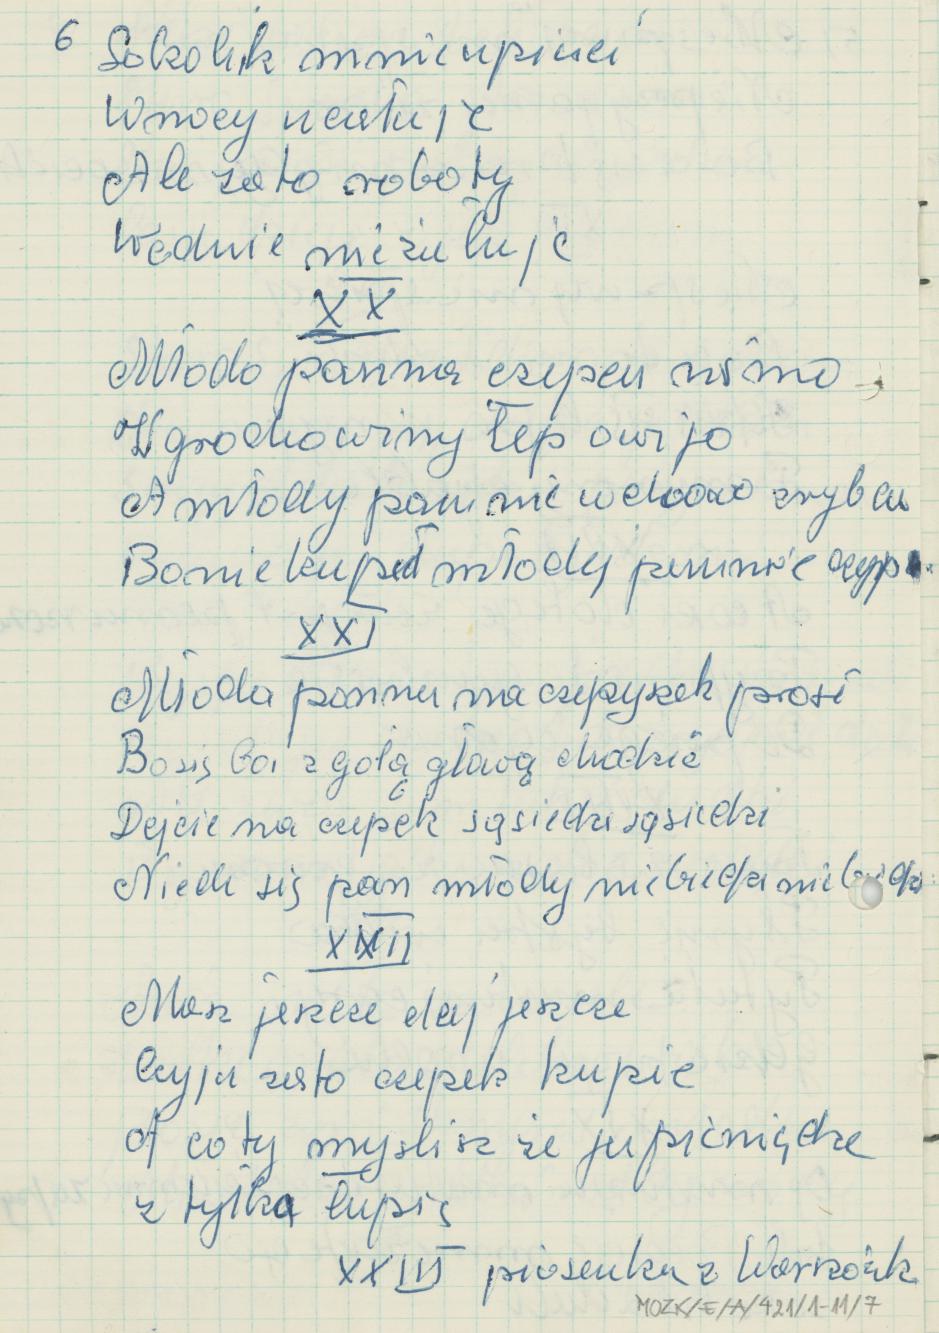 6 Sokolik mnie upieci
W nocy ucałuje
Ale zato roboty
Wednie nieżałuje
XX
Młodo panna czypca nimo
W grochowiny łep owijo
A młody pan nie wdowo zrybca
Bo nie kupił młody pannie czypca
XXI
Młoda panna na czepyszek prosi
Bo się boi z gołą głową chodzić
Dejcie na czepek sąsiedzi sąsiedzi
Niech się pan młody niebiedzi niebiedzi
XXII
Masz jeszcze daj jeszcze
Czy ja zato czepek kupie
A co ty myslisz że ja pieniądze
z tyłka łupię
XXIII piosenka z Warszówk
MOZK/E/A/421/1-11/7